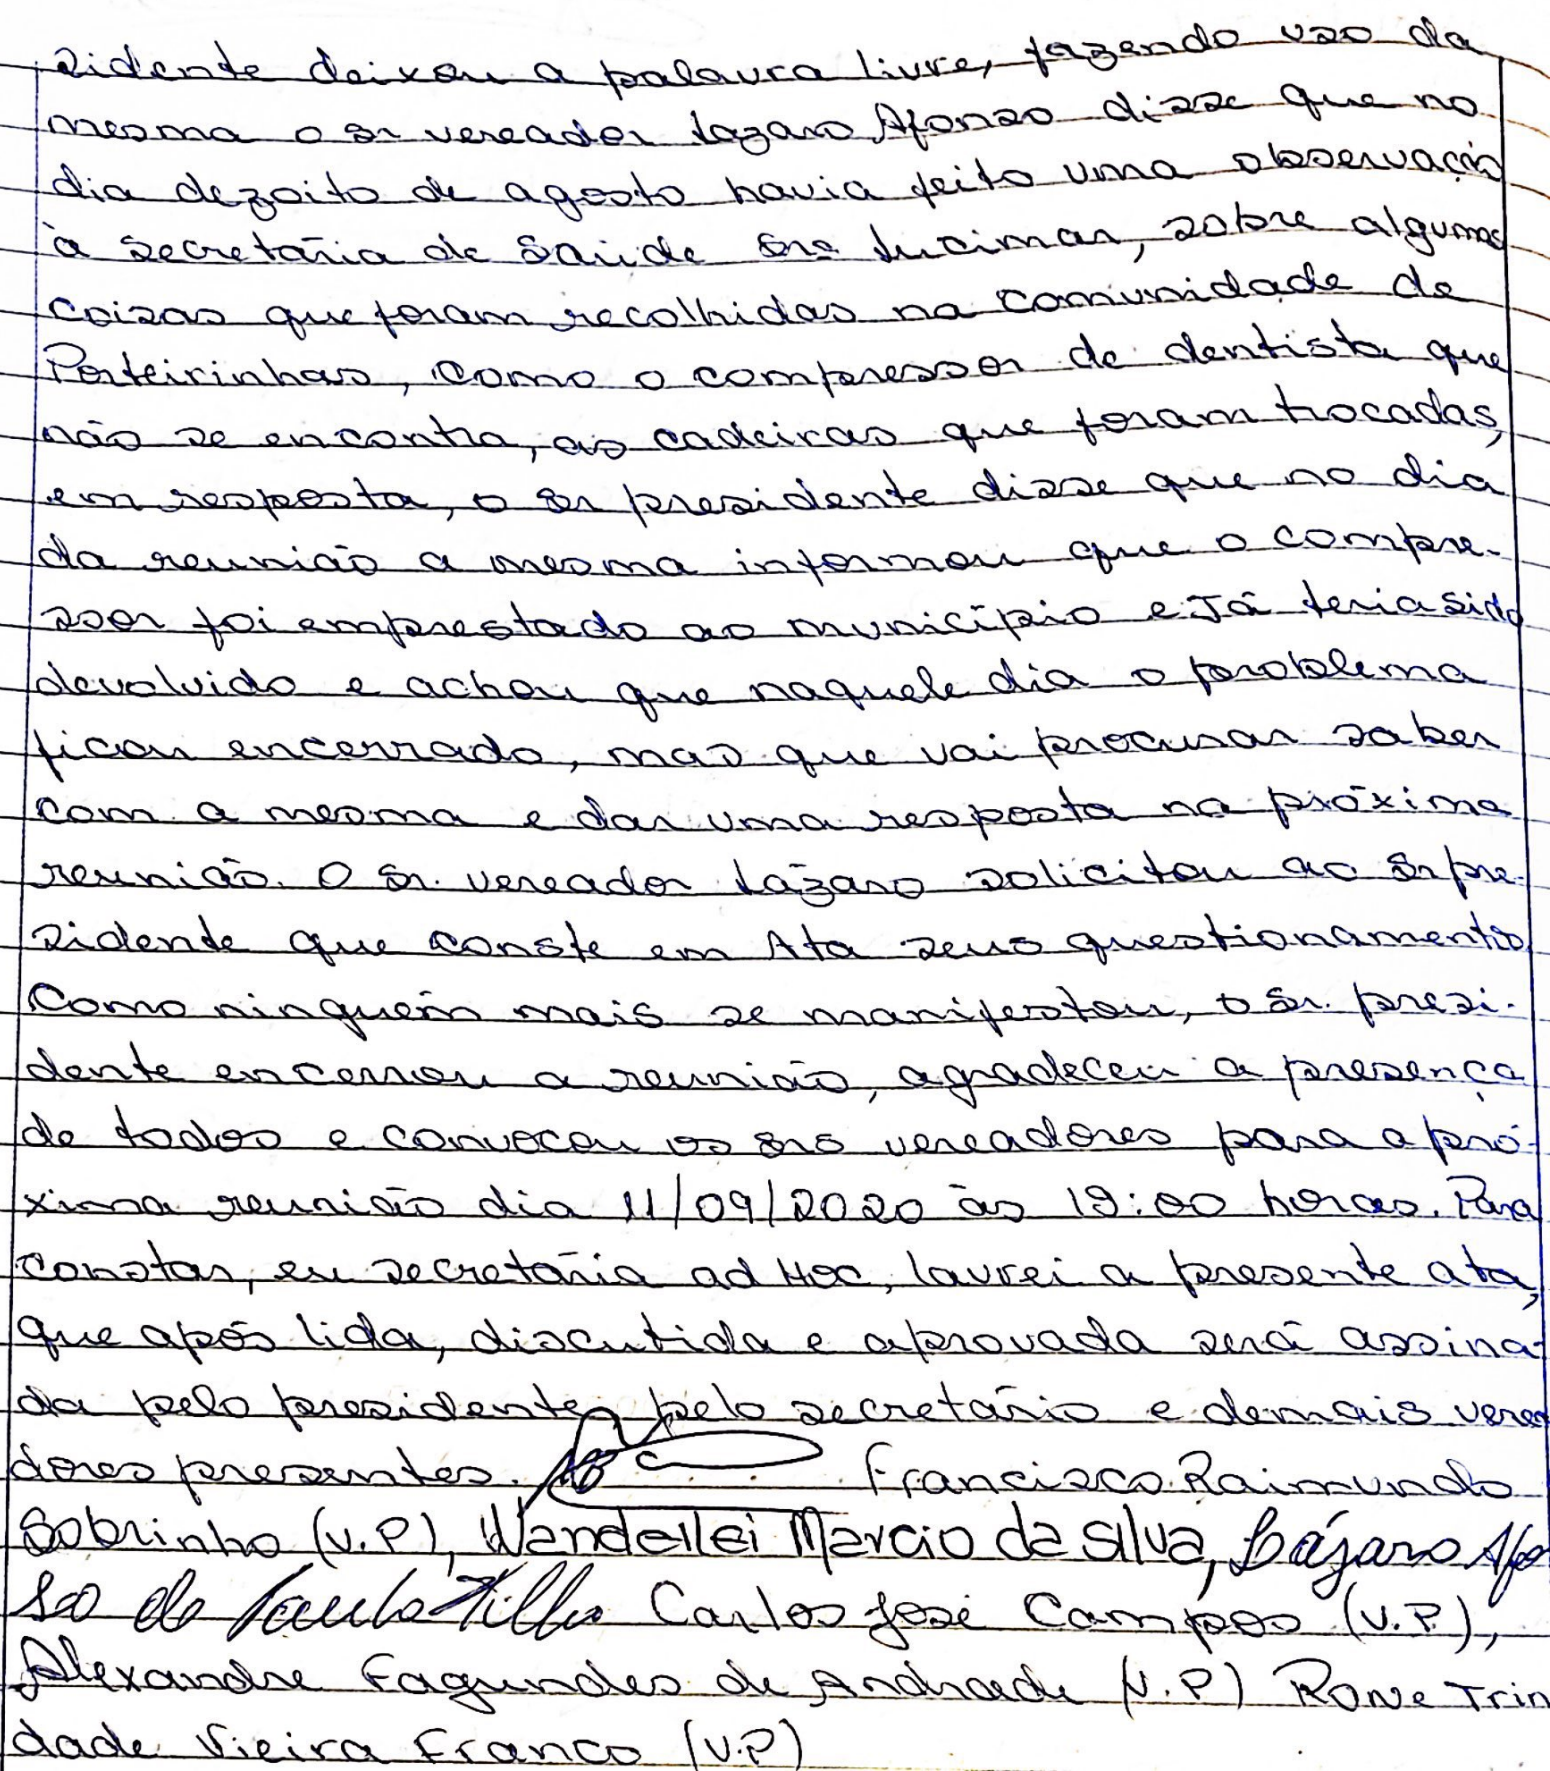 sidente deixou a palavra livre, fazendo uso da
mesma o sr vereador Lazaro Afonso disse que no
dia dezoito de agosto havia feito uma observação
à secretária de Saúde Srª Lucimar, sobre algumas
coisas que foram recolhidas na comunidade de
Porteirinhas, como o compressor de dentista que
não se encontra, as cadeiras que foram trocadas,
em resposta, o sr presidente disse que no dia
da reunião a mesma informou que o compre-
ssor foi emprestado ao município e Já teria sido
devolvido e achou que naquele dia o problema
ficou encerrado, mas que vai procurar saber
com a mesma e dar uma resposta na próxima
reunião. O Sr. vereador Lázaro solicitou ao Sr pre-
sidente que conste em Ata seus questionamentos.
Como ninguém mais se manifestou, o Sr. presi-
dente encerrou a reunião, agradeceu a presença
de todos e convocou os srs vereadores para a pró-
xima reunião dia 11/09/2020 às 19:00 horas. Para
constar, eu secretária ad Hoc, lavrei a presente ata,
que após lida, discutida e aprovada será assina-
da pelo presidente, pelo secretário e demais verea
dores presentes. Francisco Raimundo
Sobrinho (V.P), Wanderlei Marcio da Silva, Lázaro Afon
so de Paula Filho Carlos José Campos (V.P.),
Alexandre Fagundes de Andrade (V.P) Rone Trin
dade Vieira Franco (V.P)